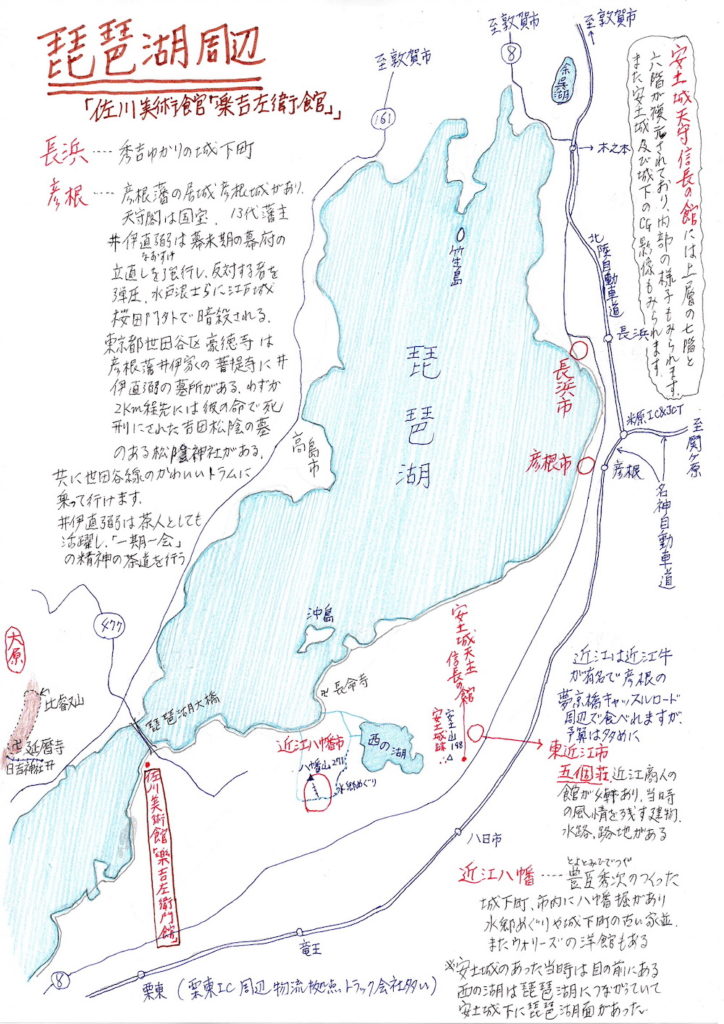 琵琶湖周辺
「佐川美術館「樂吉左衛門館」」
長浜‥‥秀吉ゆかりの城下町
彦根‥‥彦根藩の居城彦根城があり、
天守閣は国宝、13代藩主
井伊直弼は幕末期の幕府の
なおすけ
立直しを強行し、反対する者を
弾圧、水戸浪士らに江戸城
桜田門外で暗殺される。
東京都世田谷区豪徳寺は
彦根藩井伊家の菩提寺に井
伊直弼の墓所がある、わずか
2Km経先には彼の命で死
刑にされた吉田松陰の墓
のある松陰神社がある。
共に世田谷線のかわいいトラムに
乗って行けます。
井伊直弼は茶人としても
活躍し、「一期一会」
の精神の茶道を行う
至敦賀市
161
至敦賀市
8
至敦賀市
余呉湖
木之本
安土城天守信長の館には上層の七階と
六階が復元されており、内部の様子もみられます
また安土城及び城下のCG影像もみられます。
竹生島
琵琶湖
北陸自動車道
長浜
長浜市
米原IC&JCT
至関ヶ原
彦根市
彦根
名神自動車道
高島市
沖島
477
大原
比叡山
延暦寺
日吉神社
琵琶湖大橋
卍長命寺
安土城天主
信長の館
安土山198
安土城跡
近江八幡市
西の湖
八幡山271
水郷めぐり
佐川美術館「樂吉左衛門館」
近江は近江牛
が有名で彦根の
夢京橋キャッスルロード
周辺で食べれますが、
予算は多めに
東近江市
五個荘近江商人の
館が4軒あり、当時
の風情を残す建物、
水路、路地がある
八日市
近江八幡‥‥豊臣秀次のつくった
とよとみひでつぐ
城下町、市内に八幡堀があり
水郷めぐりや城下町の古い家並、
またヴォリーズの洋館もある
※安土城のあった当時は目の前にある
西の湖は琵琶湖につながっていて
安土城下に琵琶湖面があった
竜王
8
栗東(栗東IC周辺物流拠点トラック会社多い)